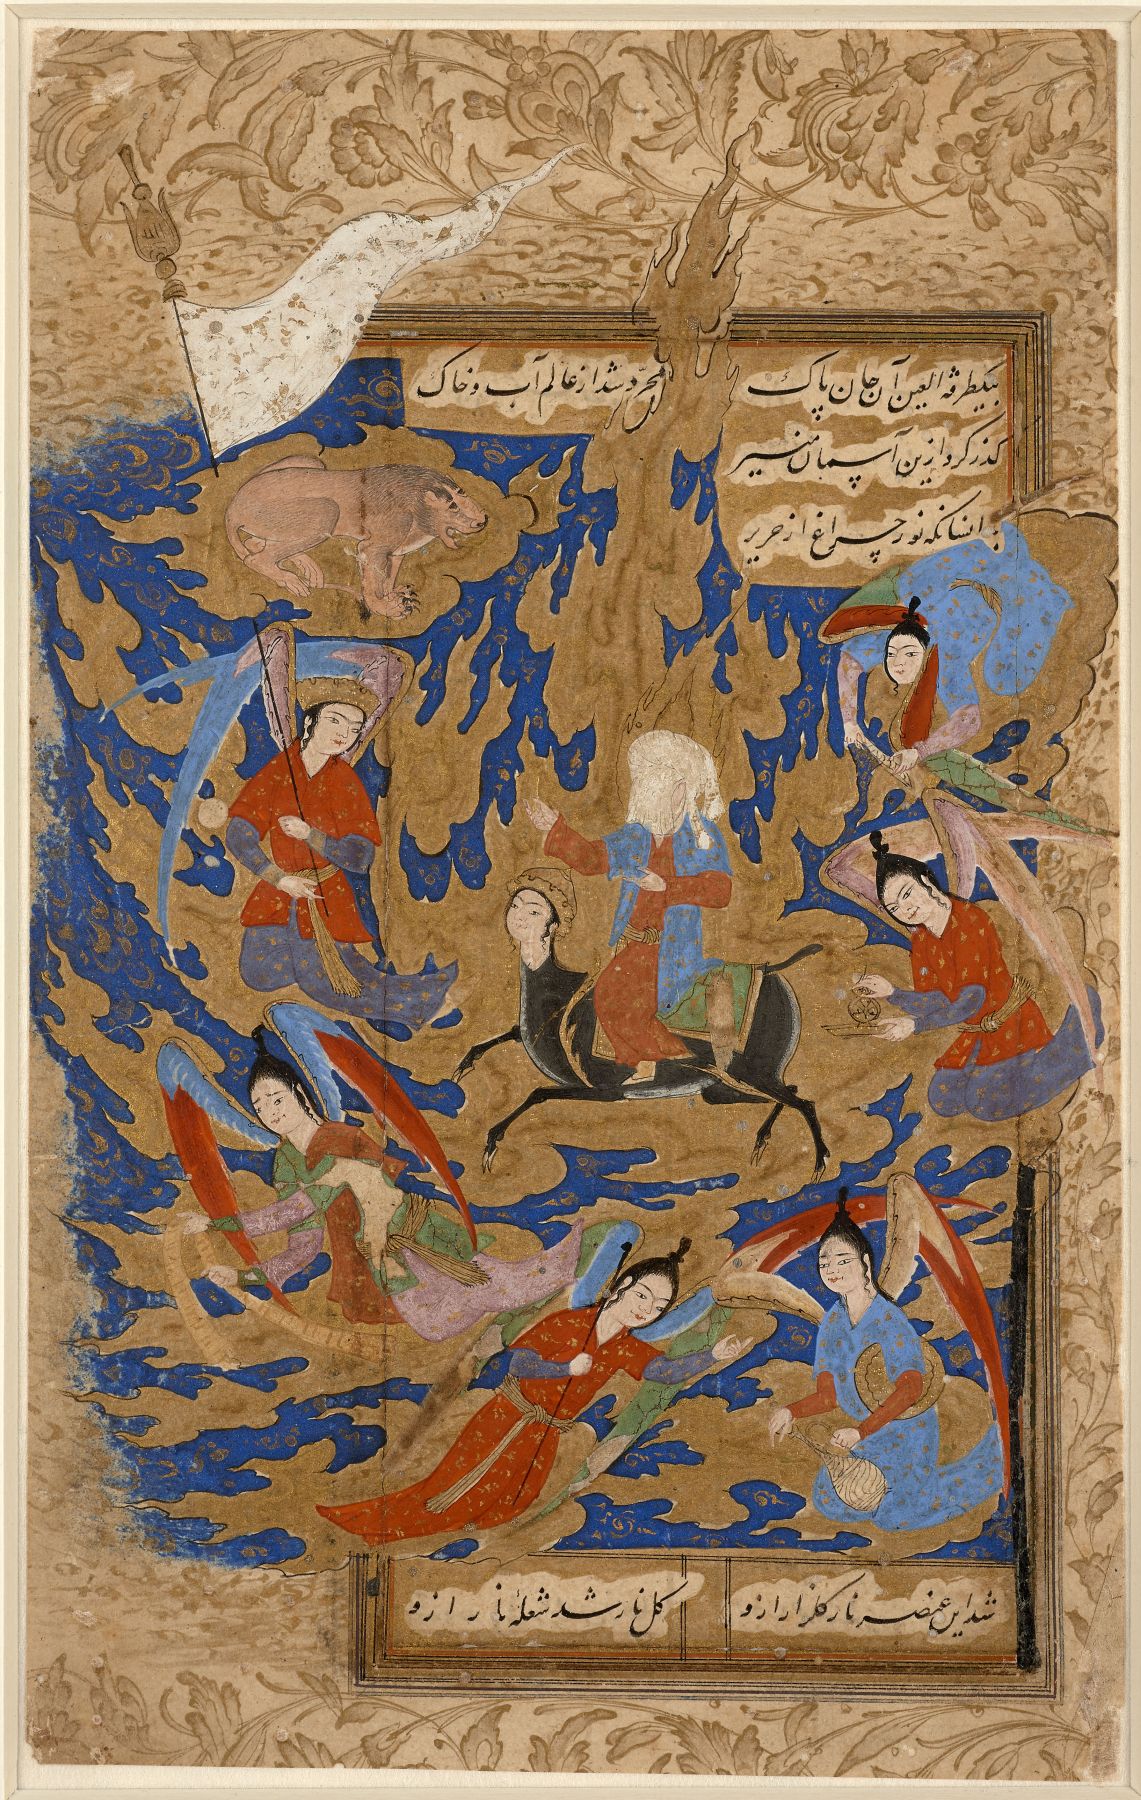 بیکطرفة العین آن جان پاک
مجرد شد از عالم آب و خاک
گذر کرد ازین آسمان منیر
انسانکه نور چراغ از حریر
شد این عنصر نار گلزار ازو
گل نار شد شعلهٔ نار ازو